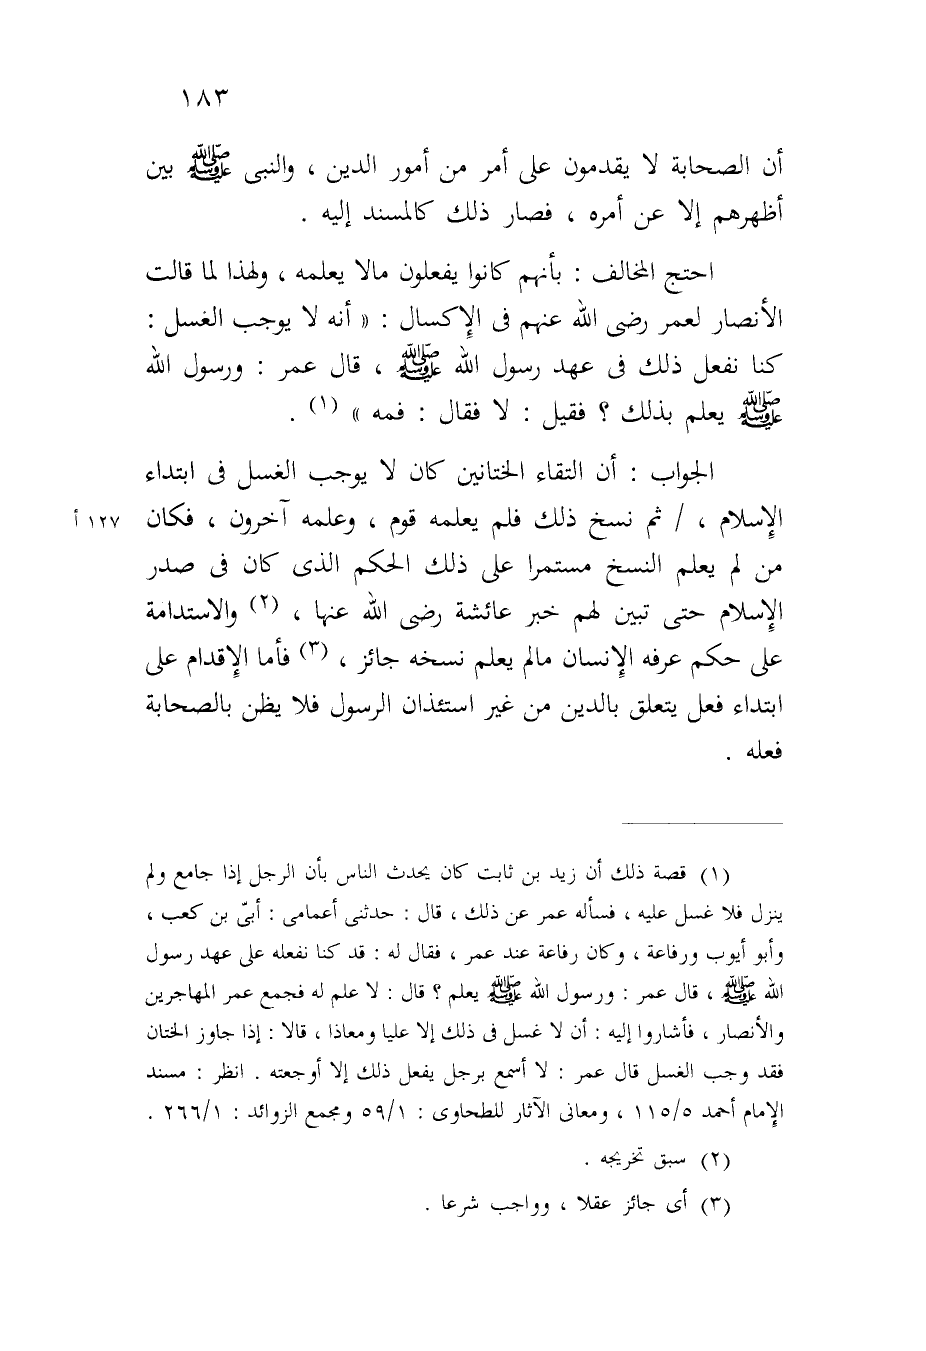 ١٨٣
أن الصحابة لا يقدمون على أمر من أمور الدين ، والنبى ﷺ بين
أظهرهم إلا عن أمره ، فصار ذلك كالمسند إليه .
احتج المخالف : بأنهم كانوا يفعلون مالا يعلمه ، ولهذا لما قالت
الأنصار لعمر رضى الله عنهم فى الإكسال : « أنه لا يوجب الغسل :
كنا نفعل ذلك فى عهد رسول الله ﷺ ، قال عمر : ورسول الله
ﷺ يعلم بذلك ؟ فقيل : لا فقال : فمه » (١) .
الجواب : أن التقاء الختانين كان لا يوجب الغسل فى ابتداء
الإسلام ، / ثم نسخ ذلك فلم يعلمه قوم ، وعلمه آخرون ، فكان ١٢٧ أ
من لم يعلم النسخ مستمرا على ذلك الحكم الذى كان فى صدر
الإسلام حتى تبين لهم خبر عائشة رضى الله عنها ، (٢) والاستدامة
على حكم عرفه الإنسان مالم يعلم نسخه جائز ، (٣) فأما الإقدام على
ابتداء فعل يتعلق بالدين من غير استئذان الرسول فلا يظن بالصحابة
فعله .
(١) قصة ذلك أن زيد بن ثابت كان يحدث الناس بأن الرجل إذا جامع ولم
ينزل فلا غسل عليه ، فسأله عمر عن ذلك ، قال : حدثنى أعمامى : أبىّ بن كعب ،
وأبو أيوب ورفاعة ، وكان رفاعة عند عمر ، فقال له : قد كنا نفعله على عهد رسول
الله ﷺ ، قال عمر : ورسول الله ﷺ يعلم ؟ قال : لا علم له فجمع عمر المهاجرين
والأنصار ، فأشاروا إليه : أن لا غسل فى ذلك إلا عليا ومعاذا ، قالا : إذا جاوز الختان
فقد وجب الغسل قال عمر : لا أسمع برجل يفعل ذلك إلا أوجعته . انظر : مسند
الإمام أحمد ١١٥/٥ ، ومعانى الآثار للطحاوى : ٥٩/١ ومجمع الزوائد : ٢٦٦/١ .
(٢) سبق تخريجه .
(٣) أى جائز عقلا ، وواجب شرعا .